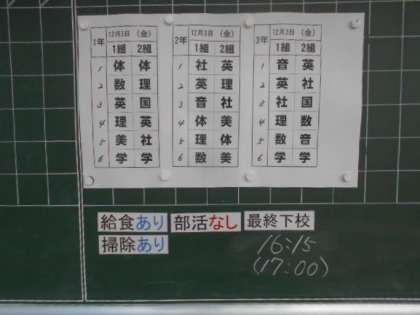 1年 12月3日 (金)
1組 2組
1 体 体
2 数 理
3 英 国
4 理 英
5 美 社
6 学 学
2年 12月3日 (金)
1組 2組
1 社 英
2 英 理
3 音 社
4 体 美
5 理 体
6 数 美
3年 12月3日 (金)
1組 2組
1 音 英
2 英 社
3 社 国
4 理 数
5 数 音
6 学 学
給食あり 部活なし 最終下校
掃除あり 16:15
(17:00)